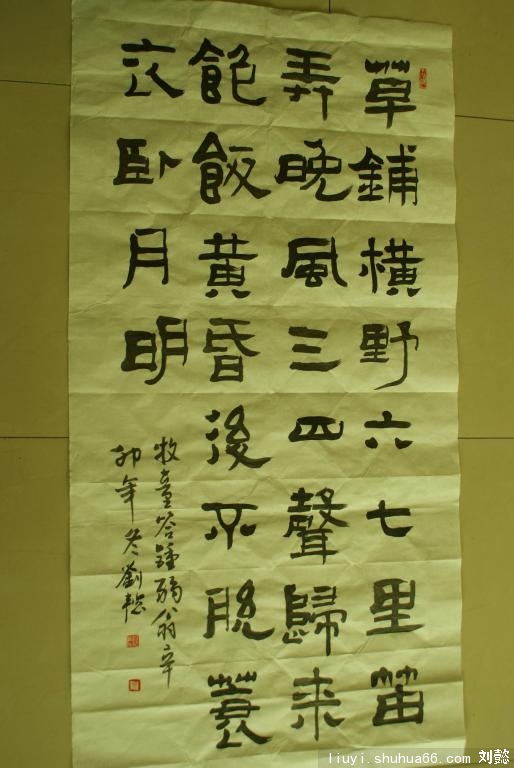 草鋪橫野六七里笛
弄晚風三四聲歸來
飽飯黃昏後不脫蓑
衣卧月明
牧童答鍾弱翁辛
卯年冬劉懿
liuyi.shuhua66.com 刘懿